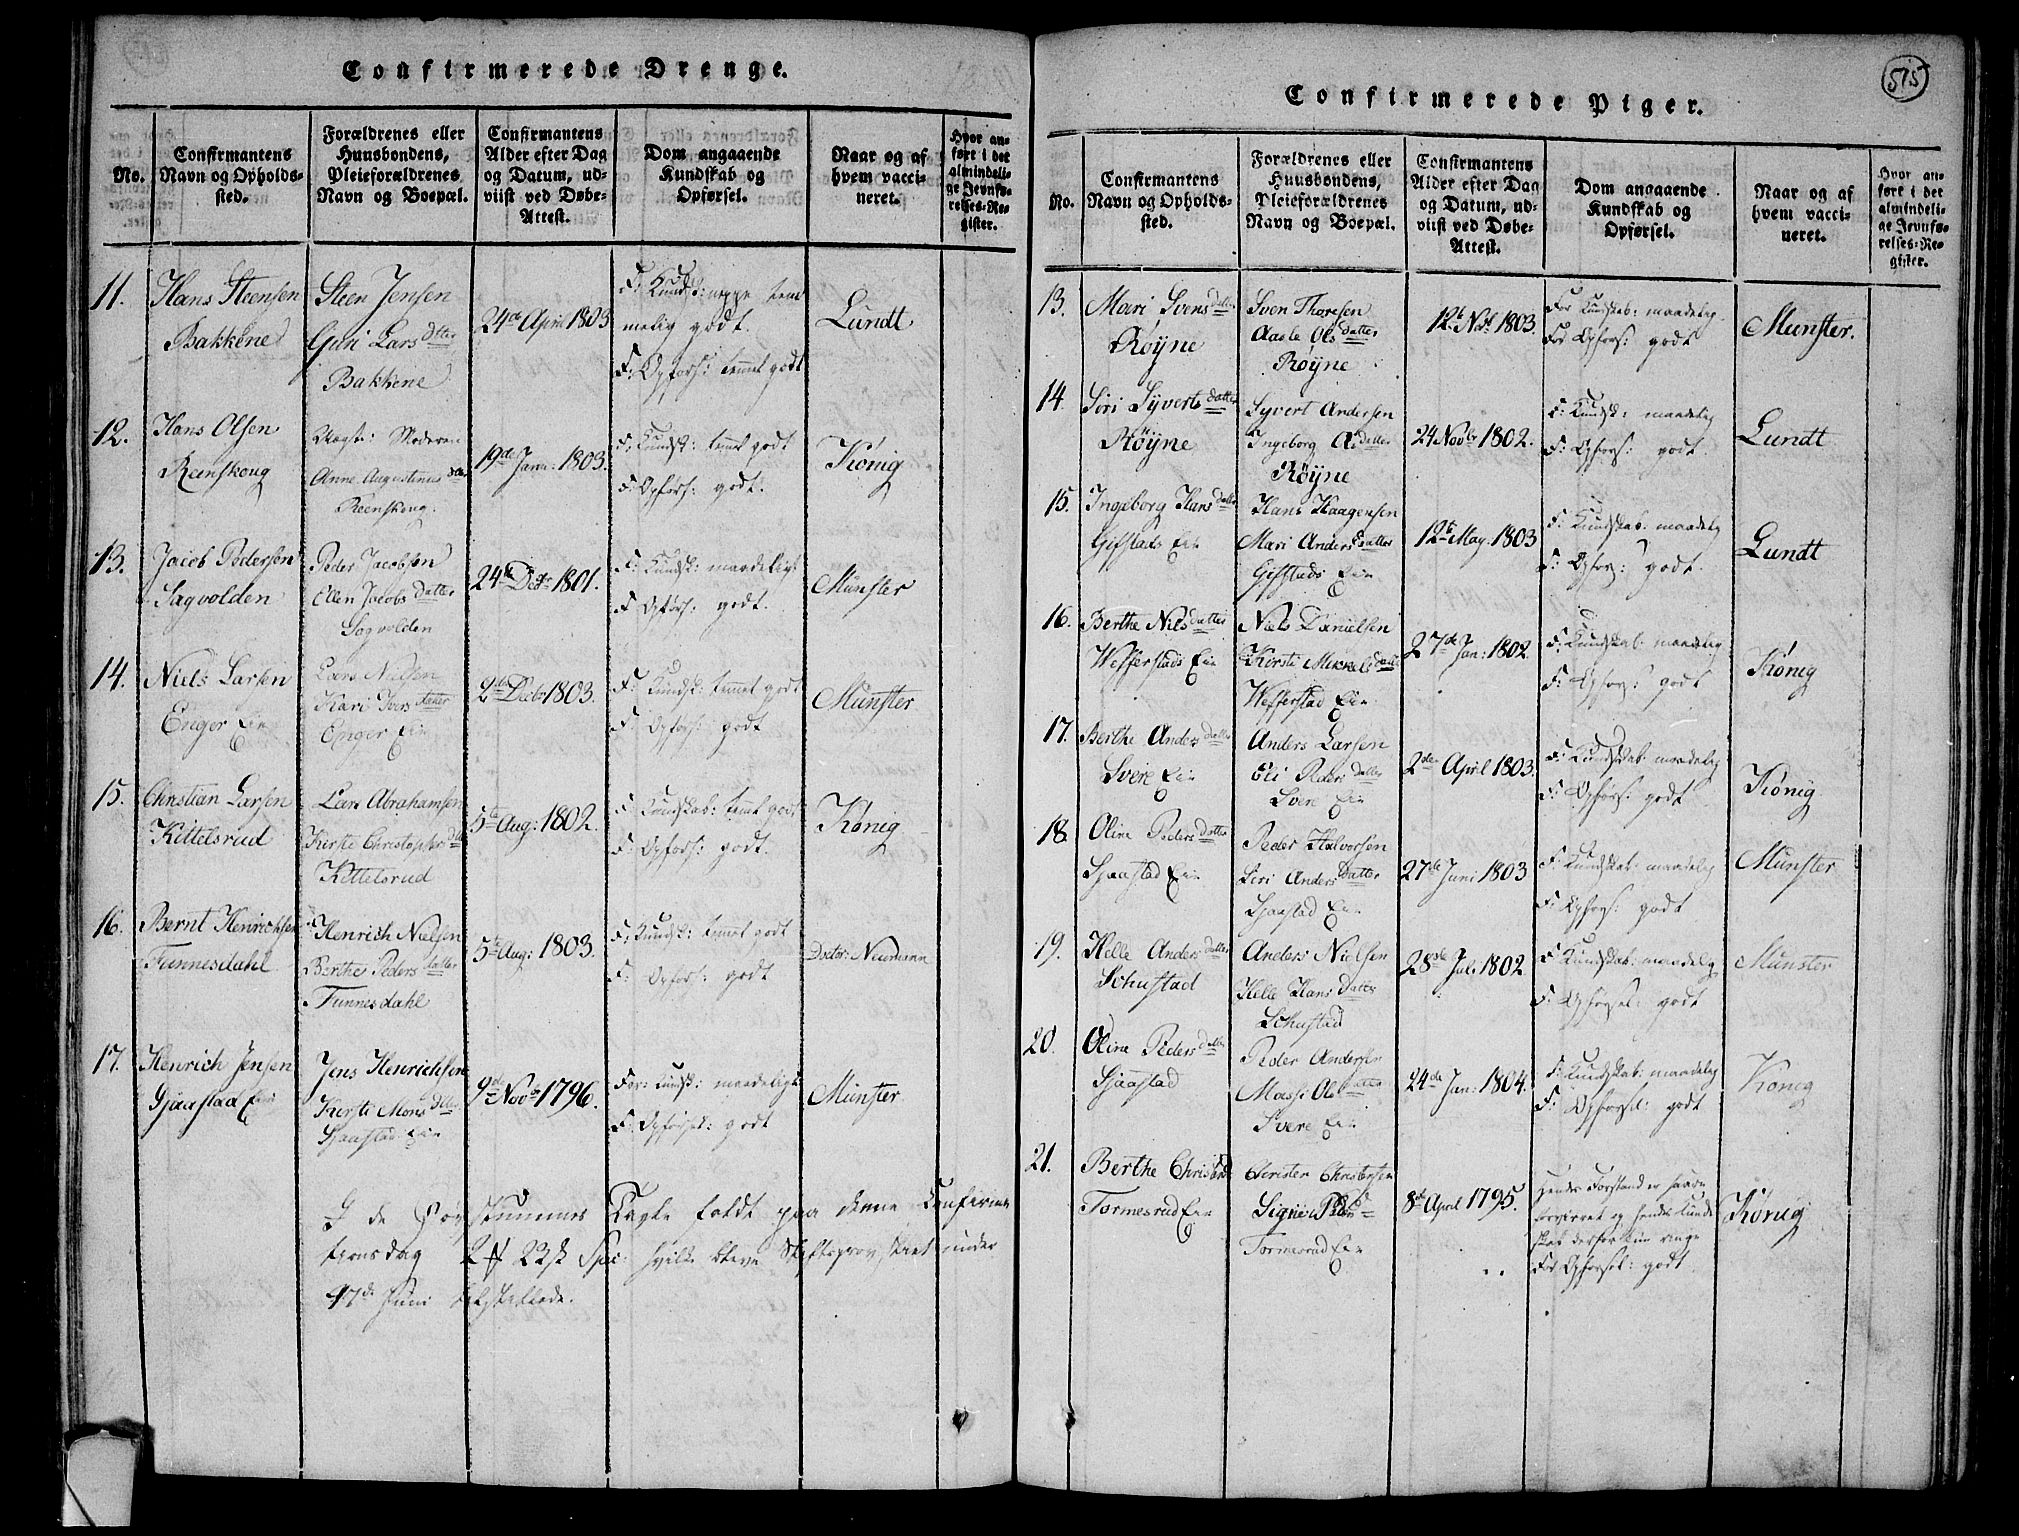 Confirmerede Drenge.
No.
Confirmantens Navn og Opholds-sted.
Forældrenes eller Huusbondens, Pleieforældrenes Navn og Boepæl.
Confirmantens Alder efter Dag og Datum, ud-viist ved Døbe-Attest.
Dom angaaende Kundskab og Opførsel.
Naar og af hvem vacci-neret.
Hvor an-ført i det almindeli-ge Jevnfø-relses-Re-gister.
11. Hans Steensen
Bakkene
Steen Jensen
Guri Larsdatter
Bakkene
24de April 1803
F: Kundsk: neppe tem
melig godt.
F: Opførs: temmt godt
Lundt
12. Hans Olsen
Reenskoug
Moderen
Anne Augustinusdtr
Reenskoug.
19de Janr: 1803.
F: Kundsk: temmt godt
F: Opførs: godt.
König
13. Jacob Pedersen
Sagvolden
Peder Jacobsen
Ellen Jacobsdatter
Sagvolden
24de Decbr 1801.
F: Kundsk: maadelig:
F: Opførs: godt.
Münster
14. Niels Larsen
Enger Eie
Lars Nielsen
Kari Iversdatter
Enger Eie
2den Decbr 1803.
F: Kundsk: temmt godt
F: Opførs: godt
Münster
15. Christian Larsen
Kittelsrud
Lars Abrahamsen
Kirste Christophersdtr
Kittelsrud
5te Aug: 1802.
F: Kundskab: temmt godt
F: Opførs: godt.
König
16. Bernt Henrichsen
Funnesdahl
Henrich Nielsen
Berthe Pedersdatter
Funnesdahl
5te Aug: 1803.
F: Kundsk: temmt godt
F: Opførs: godt
Doctor: Neumann
17. Henrich Jensen
Sjaastad Eie
Jens Henrichsen
Kirsti Monsdtr
Sjaastad Eie
9de Novbr 1796.
For: Kundsk: maadeligt
F: Opførsel: godt
Münster
I de Døvstummes Tavle faldt paa denne Confirma
tionsdag 2 23 sk Spec: hvilke bleve Stiftsprovstiet under
17de Juni tilstillede.
Confirmerede Piger.
515
No.
Confirmantens Navn og Opholds-sted.
Forældrenes eller Huusbondens, Pleieforældrenes Navn og Boepæl.
Confirmantens Alder efter Dag og Datum, ud-viist ved Døbe-Attest.
Dom angaaende Kundskab og Opførsel.
Naar og af hvem vacci-neret.
Hvor an-ført i det almindeli-ge Jevnfø-relses-Re-gister.
13. Mari Svensdatter
Røyne
Sven Thoresen
Aasle Olsdatter
Røyne
12te Nob 1803.
For Kundskab: maadelig.
For Opførs: godt
Munster.
14. Siri Syvertsdatter
Røyne
Syvert Andersen
Ingeborg A:datter
Røyne
24 Novbr 1802.
F: Kundsk: maadelig
F: Opførs: godt.
Lundt
15. Ingeborg Hansdatter
Gifstads Eie
Hans Haagensen
Mari Andersdatter
Gifstads Eie
12te May. 1803
F: Kundskab: maadelig
F: Opførs: godt.
Lundt
16. Berthe Nilsdatter
Wefferstads Eie
Niels Danielsen
Kirsti Mikkelsdatter
Wefferstad Eie.
27de Jan: 1802.
F: Kundskab: maadelig
F: Opførs: godt
König
17. Berthe Andersdatter
Svere Eie
Anders Larsen
Eli Pedersdatter
Svere Eie
2den April 1803.
F: Kundskab: maadelig
F: Opførs: godt
König
18 Oline Pedersdatter
Sjaastad Eie
Peder Halvorsen
Siri Andersdatter
Sjaastad Eie
27de Juni 1803
F: Kundskab: maadelig
F: Opførs: godt
Münster
19. Helle Andersdatter
Schustad
Anders Nielsen
Helle Hansdatter
Schustad
28de Juli 1802
F: Kundskab: maadelig
F: Opførsel: godt
Münster
20. Oline Pedersdatter
Sjaastad
Peder Andersen
Massi Olsdatter
Svere Eie
24de Jan: 1804.
F: Kundskab: maadelig
F: Opførsel: godt
König
21. Berthe Christers
Tormesrud Eie
Christer Christersen
Signe Peders
Tormesrud Eie
8de April 1795.
Hendes Forstand er
forvirret og hendes Kund
skab derfor kun ringe
For Opførsel: godt.
König